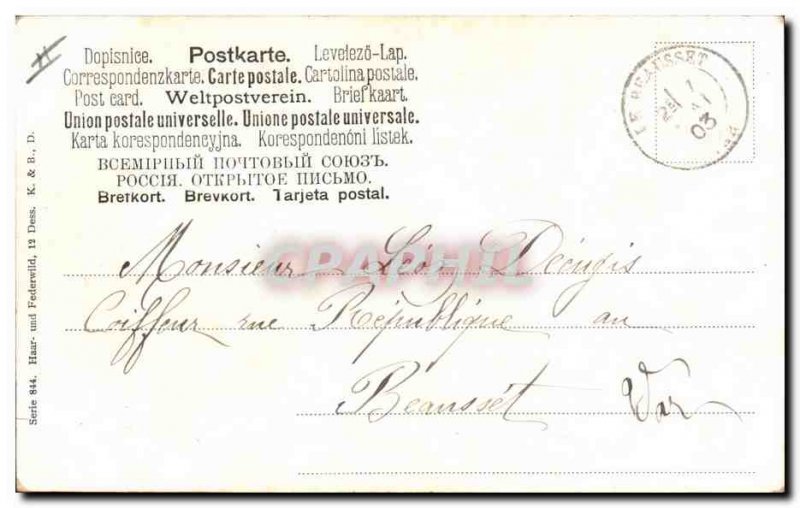 Dopisnice. Postkarte. Levelező-Lap.
Correspondenzkarte. Carte postale. Cartolina postale.
Post card. Weltpostverein. Briefkaart.
Union postale universelle. Unione postale universale.
Karta korespondencyjna. Korespondenčni listek.
ВСЕМІРНЫЙ ПОЧТОВЫЙ СОЮЗЪ.
РОССІЯ. ОТКРЫТОЕ ПИСЬМО.
Brefkort. Brevkort. Tarjeta postal.
LE BEAUSSET
1
03
Monsieur Léon
Coiffeur rue République au
Beausset Var
Serie 844. Haar- und Federwild, 12 Dess. K. & B., D.
CPAPHIL